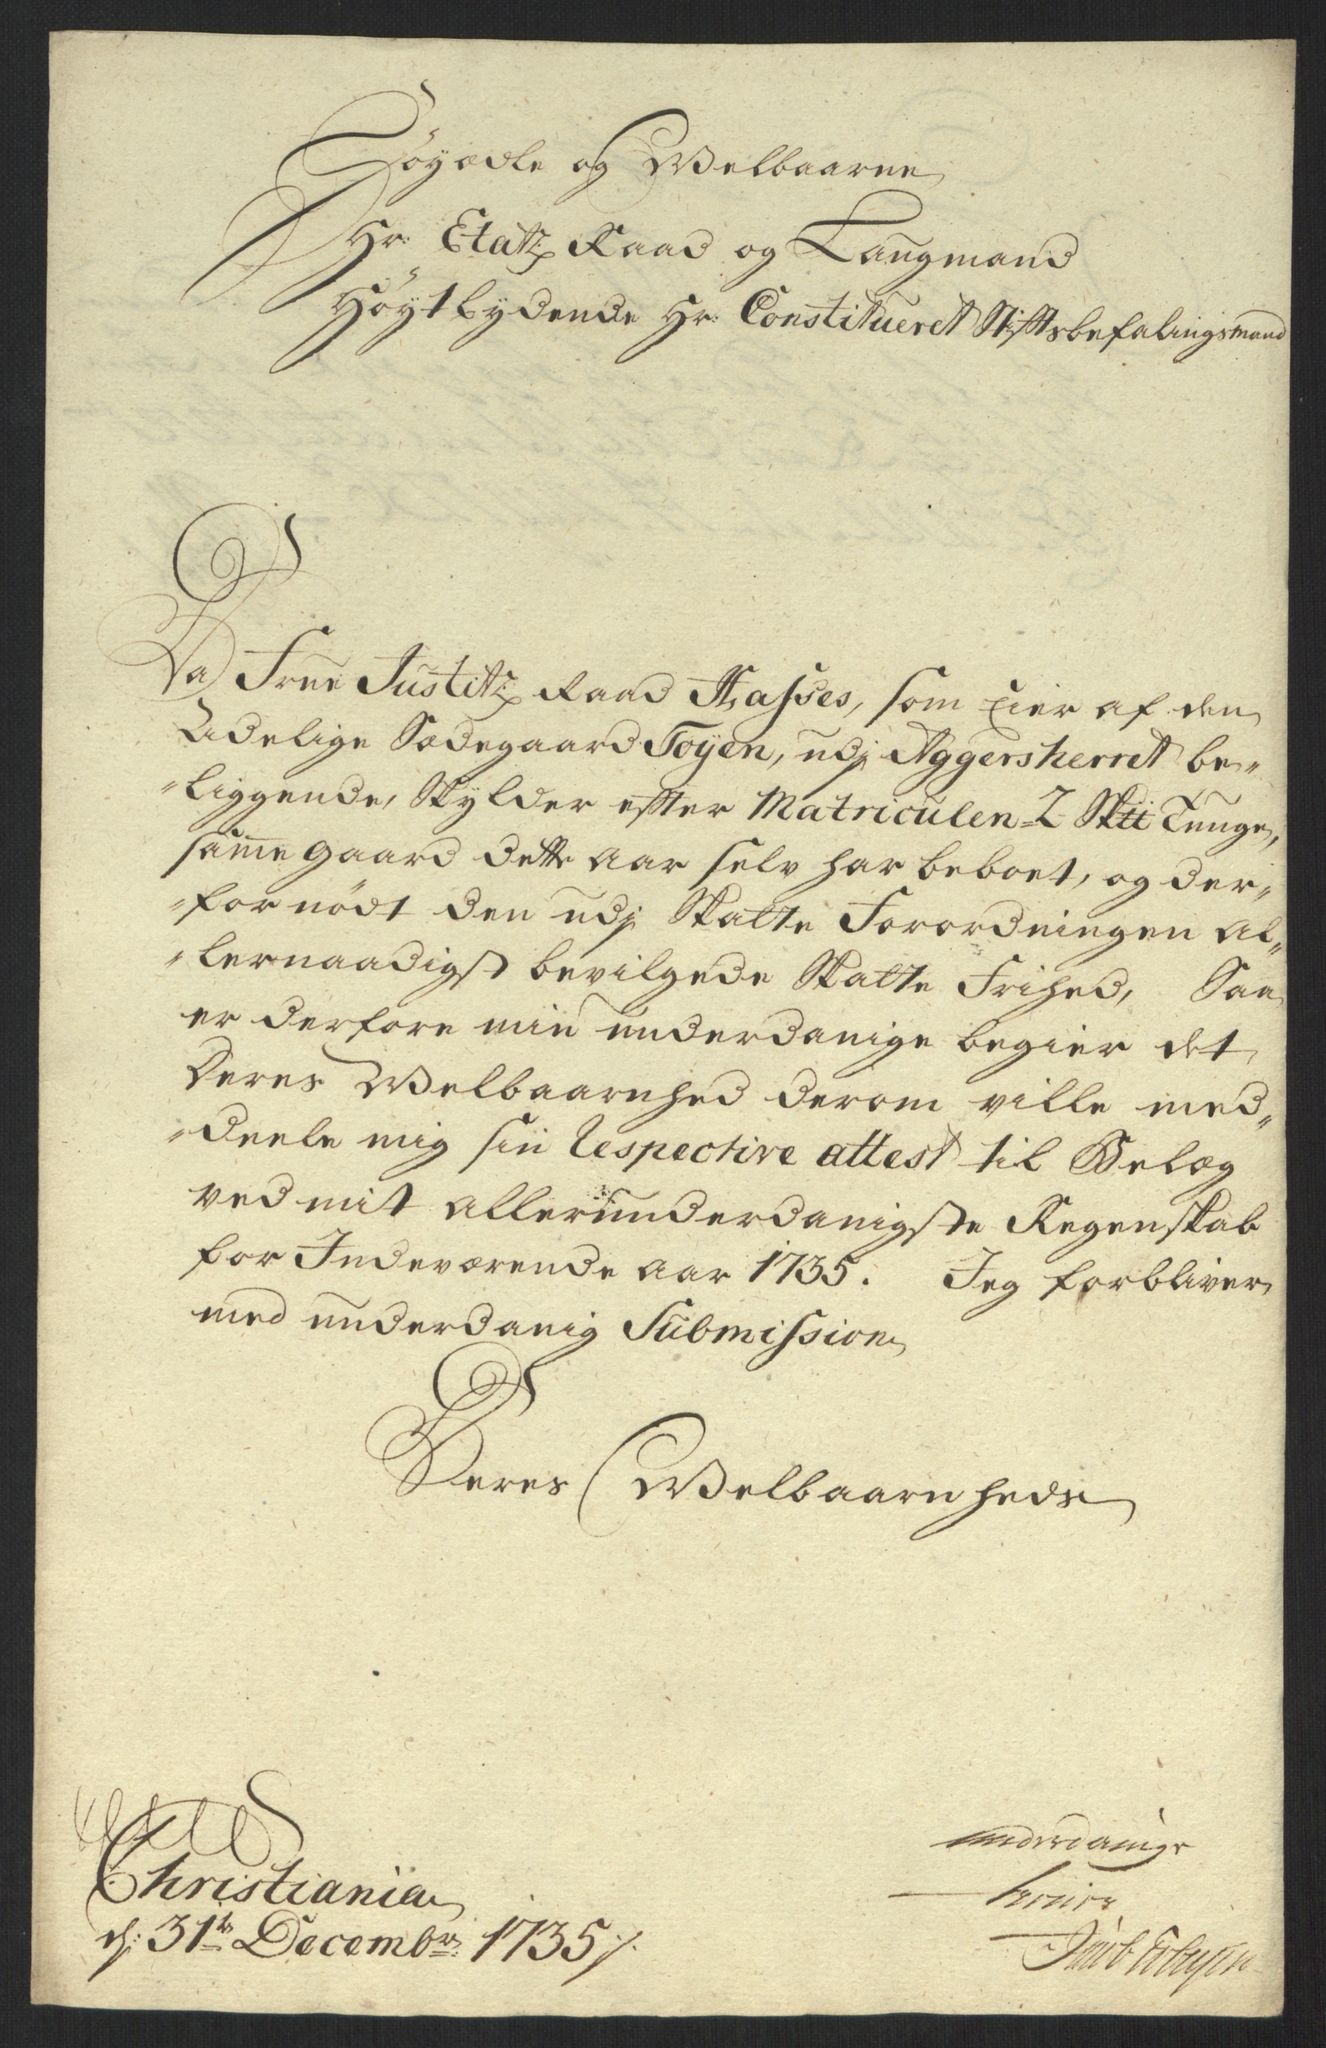 Høyædle og Welbaarne
Hr. Etatz Raad og Laugmand
Høyt bydende Hr: Constitueret Stiftsbefalingsmand
Da Frue Justitz Raad Thasses, som Eier af den
Adelige Sædegaard Tøyen, udj Aggersherret be-
-liggende, Skylder effter Matriculen 2 Skll Tunge,
samme gaard dette Aar selv har beboet, og der-
-for nødt den udj Skatte Forordningen Al-
-lernaadigst bevilgede Skatte Frihed, Saa
er derfore min underdanige begier det
Deres Welbaarnhed derom ville med-
-deele mig sin Respective attest til Belæg
ved mit allerunderdanigste Regenskab
for Indeværende Aar 1735. Jeg forbliver
med underdanig Submission
Deres Welbaarnheds
Christiania
d: 31te Decembr: 1735
underdanige
tienner
Jacob